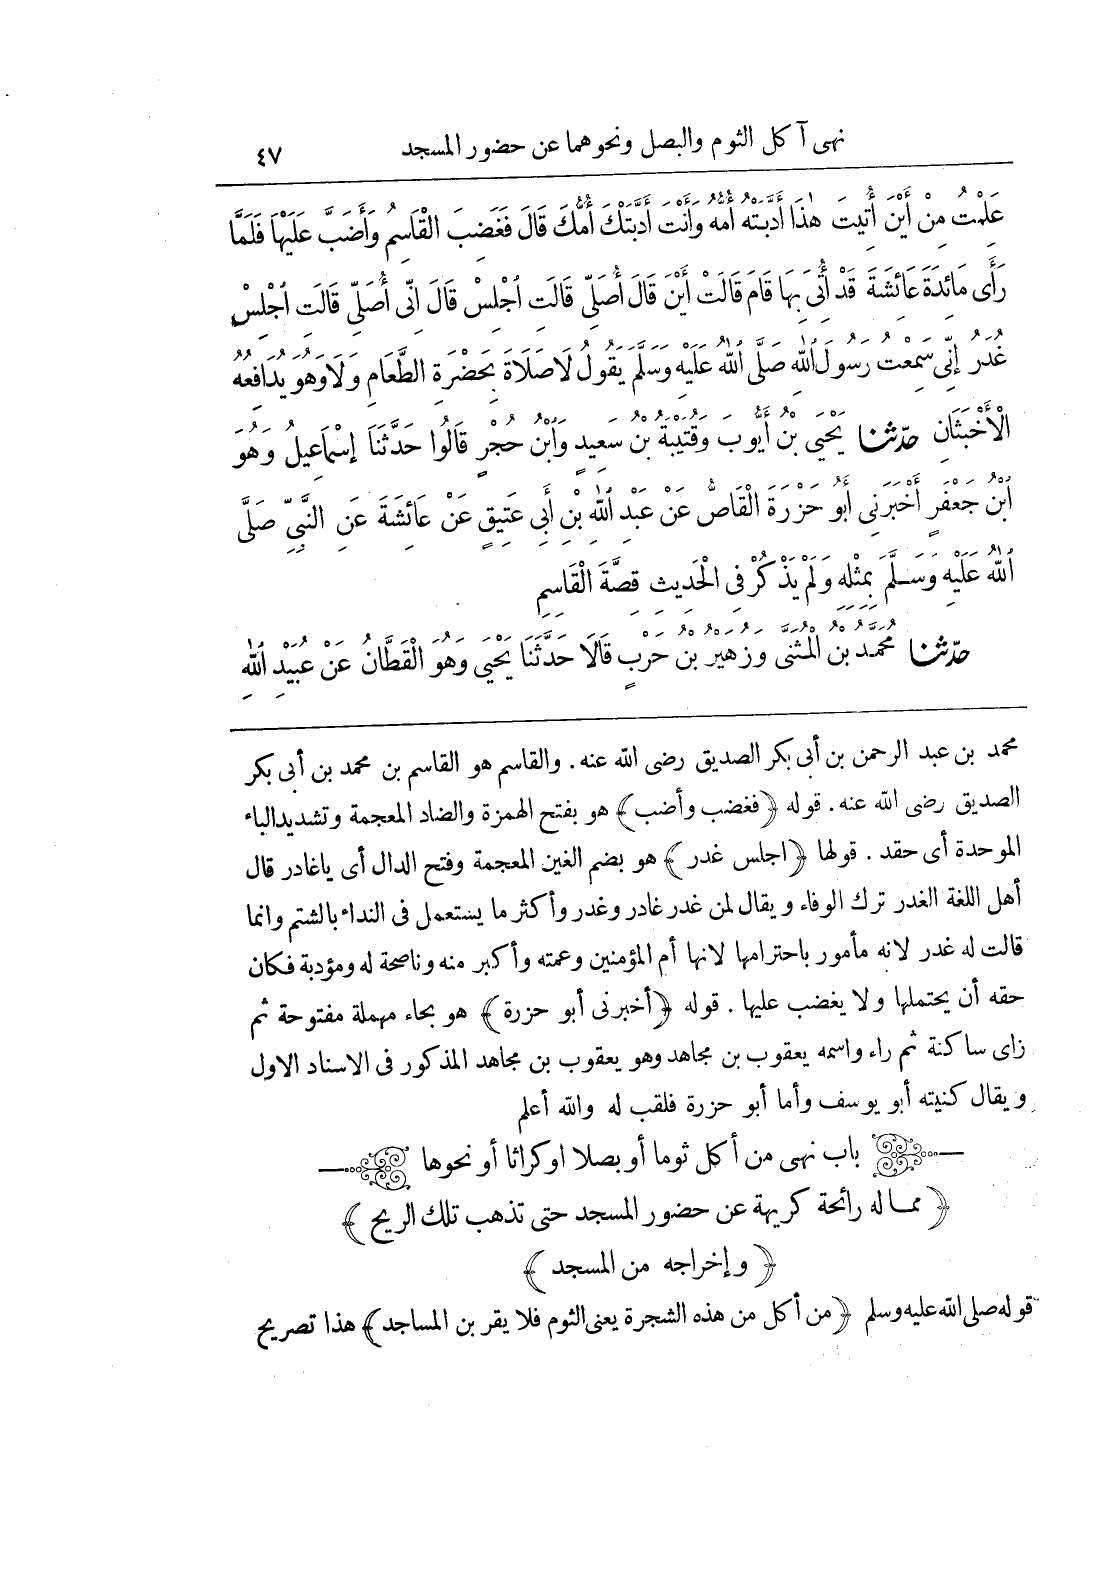 نهى آكل الثوم والبصل ونحوهما عن حضور المسجد ٤٧
عَلِمْتُ مِنْ أَيْنَ أُتِيتَ هٰذَا أَدَّبَتْهُ أُمُّهُ وَأَنْتَ أَدَّبَتْكَ أُمُّكَ قَالَ فَغَضِبَ الْقَاسِمُ وَأَضَبَّ عَلَيْهَا فَلَمَّا
رَأَى مَائِدَةَ عَائِشَةَ قَدْ أُتِىَ بِهَا قَامَ قَالَتْ أَيْنَ قَالَ أُصَلِّى قَالَتِ ٱجْلِسْ قَالَ إِنِّى أُصَلِّى قَالَتِ ٱجْلِسْ
غُدَرُ إِنِّى سَمِعْتُ رَسُولَ ٱللهِ صَلَّى ٱللهُ عَلَيْهِ وَسَلَّمَ يَقُولُ لَا صَلَاةَ بِحَضْرَةِ الطَّعَامِ وَلَا وَهُوَ يُدَافِعُهُ
الْأَخْبَثَانِ حدّثنا يَحْيَى بْنُ أَيُّوبَ وَقُتَيْبَةُ بْنُ سَعِيدٍ وَٱبْنُ حُجْرٍ قَالُوا حَدَّثَنَا إِسْمَاعِيلُ وَهُوَ
ٱبْنُ جَعْفَرٍ أَخْبَرَنِى أَبُو حَزْرَةَ الْقَاصُّ عَنْ عَبْدِ ٱللهِ بْنِ أَبِى عَتِيقٍ عَنْ عَائِشَةَ عَنِ النَّبِىِّ صَلَّى
ٱللهُ عَلَيْهِ وَسَلَّمَ بِمِثْلِهِ وَلَمْ يَذْكُرْ فِى الْحَدِيثِ قِصَّةَ الْقَاسِمِ
حدّثنا مُحَمَّدُ بْنُ الْمُثَنَّى وَزُهَيْرُ بْنُ حَرْبٍ قَالَا حَدَّثَنَا يَحْيَى وَهُوَ الْقَطَّانُ عَنْ عُبَيْدِ ٱللهِ
محمد بن عبد الرحمن بن أبى بكر الصديق رضى الله عنه. والقاسم هو القاسم بن محمد بن أبى بكر
الصديق رضى الله عنه. قوله ﴿فغضب وأضب﴾ هو بفتح الهمزة والضاد المعجمة وتشديد الباء
الموحدة أى حقد. قولها ﴿اجلس غدر﴾ هو بضم الغين المعجمة وفتح الدال أى ياغادر قال
أهل اللغة الغدر ترك الوفاء ويقال لمن غدر غادر وغدر وأكثر ما يستعمل فى النداء بالشتم وانما
قالت له غدر لانه مأمور باحترامها لانها أم المؤمنين وعمته وأكبر منه وناصحة له ومؤدبة فكان
حقه أن يحتملها ولا يغضب عليها. قوله ﴿أخبرنى أبو حزرة﴾ هو بحاء مهملة مفتوحة ثم
زاى ساكنة ثم راء واسمه يعقوب بن مجاهد وهو يعقوب بن مجاهد المذكور فى الاسناد الاول
ويقال كنيته أبو يوسف وأما أبو حزرة فلقب له والله أعلم
باب نهى من أكل ثوما أو بصلا اوكراثا أو نحوها
﴿مما له رائحة كريهة عن حضور المسجد حتى تذهب تلك الريح﴾
﴿وإخراجه من المسجد﴾
قوله صلى الله عليه وسلم ﴿من أكل من هذه الشجرة يعنى الثوم فلا يقربن المساجد﴾ هذا تصريح